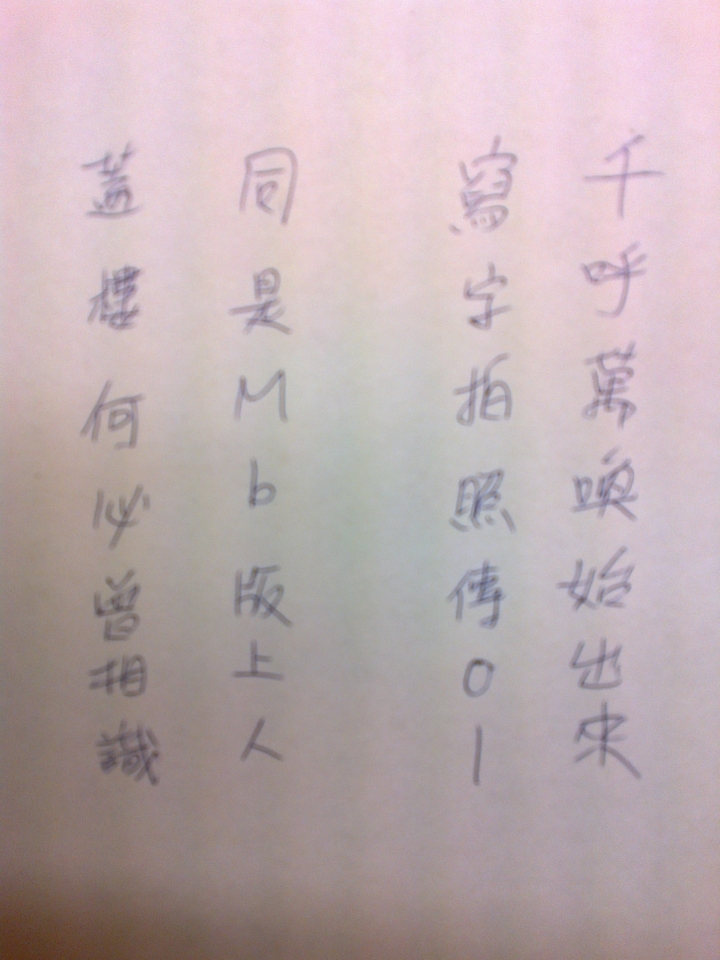 千呼萬喚始出來
寫字拍照傳01
同是Mb版上人
蓋樓何必曾相識